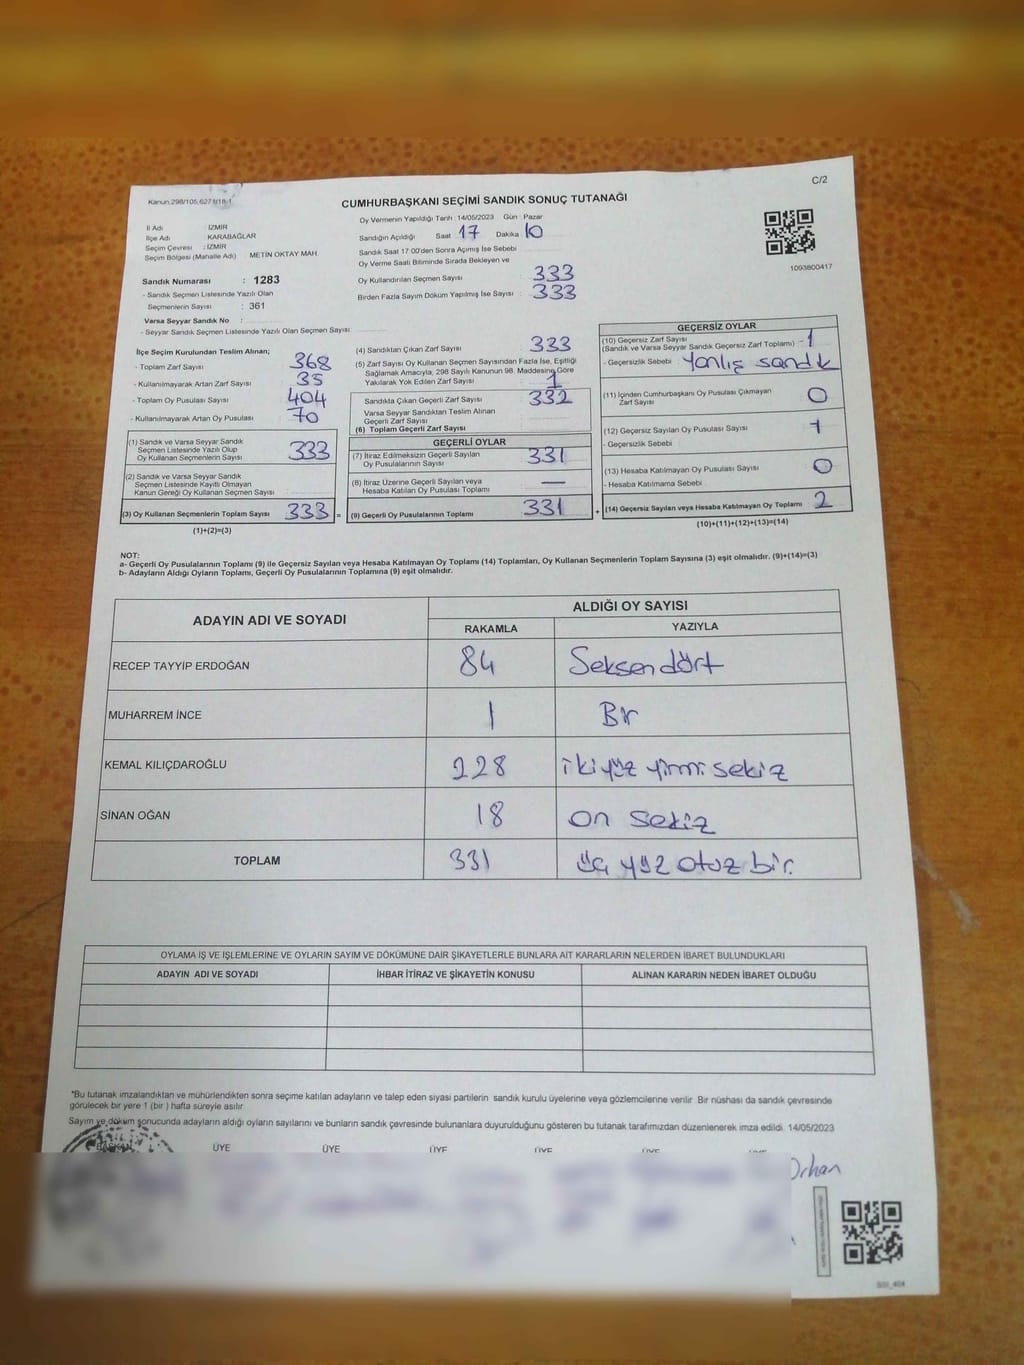 C/2
Kanun,298/105,6271/18-1
CUMHURBAŞKANI SEÇİMİ SANDIK SONUÇ TUTANAĞI
Oy Vermenin Yapıldığı Tarih : 14/05/2023 Gün : Pazar
İl Adı : İZMİR
İlçe Adı : KARABAĞLAR
Seçim Çevresi : İZMİR
Seçim Bölgesi (Mahalle Adı) METİN OKTAY MAH.
Sandığın Açıldığı Saat 17 Dakika 10
Sandık Saat 17 00'den Sonra Açımış İse Sebebi
Oy Verme Saati Bitiminde Sırada Bekleyen ve
Oy Kullandırılan Seçmen Sayısı : 333
Birden Fazla Sayım Döküm Yapılmış İse Sayısı : 333
1093800417
Sandık Numarası : 1283
- Sandık Seçmen Listesinde Yazılı Olan
Seçmenlerin Sayısı : 361
Varsa Seyyar Sandık No :
- Seyyar Sandık Seçmen Listesinde Yazılı Olan Seçmen Sayısı
İlçe Seçim Kurulundan Teslim Alınan;
- Toplam Zarf Sayısı 368
- Kullanılmayarak Artan Zarf Sayısı 35
- Toplam Oy Pusulası Sayısı 404
- Kullanılmayarak Artan Oy Pusulası 70
(1) Sandık ve Varsa Seyyar Sandık
Seçmen Listesinde Yazılı Olup
Oy Kullanan Seçmenlerin Sayısı 333
(2) Sandık ve Varsa Seyyar Sandık
Seçmen Listesinde Kayıtlı Olmayan
Kanun Gereği Oy Kullanan Seçmen Sayısı
(3) Oy Kullanan Seçmenlerin Toplam Sayısı 333 =
(1)+(2)=(3)
(4) Sandıktan Çıkan Zarf Sayısı 333
(5) Zarf Sayısı Oy Kullanan Seçmen Sayısından Fazla İse, Eşitliği
Sağlamak Amacıyla, 298 Sayılı Kanunun 98. Maddesine Göre
Yakılarak Yok Edilen Zarf Sayısı 1
Sandıkta Çıkan Geçerli Zarf Sayısı 332
Varsa Seyyar Sandıktan Teslim Alınan
Geçerli Zarf Sayısı
(6) Toplam Geçerli Zarf Sayısı
GEÇERLİ OYLAR
(7) İtiraz Edilmeksizin Geçerli Sayılan
Oy Pusulalarının Sayısı 331
(8) İtiraz Üzerine Geçerli Sayılan veya
Hesaba Katılan Oy Pusulası Toplamı —
(9) Geçerli Oy Pusulalarının Toplamı 331 +
GEÇERSİZ OYLAR
(10) Geçersiz Zarf Sayısı
(Sandık ve Varsa Seyyar Sandık Geçersiz Zarf Toplamı) 1
- Geçersizlik Sebebi Yanlış sandık
(11) İçinden Cumhurbaşkanı Oy Pusulası Çıkmayan
Zarf Sayısı 0
(12) Geçersiz Sayılan Oy Pusulası Sayısı 1
- Geçersizlik Sebebi
(13) Hesaba Katılmayan Oy Pusulası Sayısı 0
- Hesaba Katılmama Sebebi
(14) Geçersiz Sayılan veya Hesaba Katılmayan Oy Toplamı 2
(10)+(11)+(12)+(13)=(14)
NOT:
a- Geçerli Oy Pusulalarının Toplamı (9) ile Geçersiz Sayılan veya Hesaba Katılmayan Oy Toplamı (14) Toplamları, Oy Kullanan Seçmenlerin Toplam Sayısına (3) eşit olmalıdır. (9)+(14)=(3)
b- Adayların Aldığı Oyların Toplamı, Geçerli Oy Pusulalarının Toplamına (9) eşit olmalıdır.
ADAYIN ADI VE SOYADI
ALDIĞI OY SAYISI
RAKAMLA YAZIYLA
RECEP TAYYİP ERDOĞAN 84 Seksen dört
MUHARREM İNCE 1 Bir
KEMAL KILIÇDAROĞLU 228 iki yüz yirmi sekiz
SİNAN OĞAN 18 on sekiz
TOPLAM 331 üç yüz otuz bir.
OYLAMA İŞ VE İŞLEMLERİNE VE OYLARIN SAYIM VE DÖKÜMÜNE DAİR ŞİKAYETLERLE BUNLARA AİT KARARLARIN NELERDEN İBARET BULUNDUKLARI
ADAYIN ADI VE SOYADI İHBAR İTİRAZ VE ŞİKAYETİN KONUSU ALINAN KARARIN NEDEN İBARET OLDUĞU
*Bu tutanak imzalandıktan ve mühürlendikten sonra seçime katılan adayların ve talep eden siyasi partilerin sandık kurulu üyelerine veya gözlemcilerine verilir. Bir nüshası da sandık çevresinde
görülecek bir yere 1 (bir ) hafta süreyle asılır
Sayım ve döküm sonucunda adayların aldığı oyların sayılarını ve bunların sandık çevresinde bulunanlara duyurulduğunu gösteren bu tutanak tarafımızdan düzenlenerek imza edildi. 14/05/2023
BAŞKAN ÜYE ÜYE ÜYE ÜYE
Orhan